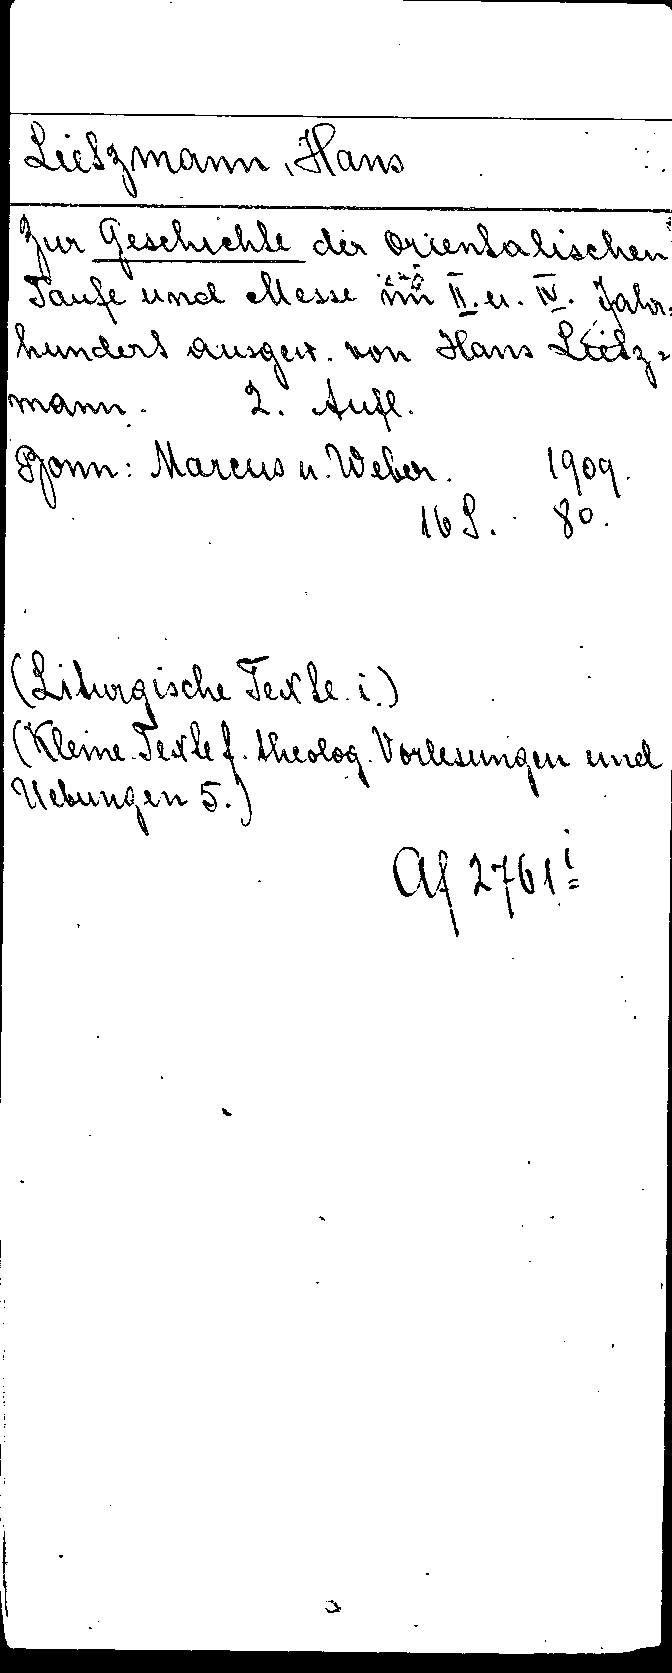 Lietzmann, Hans
Zur Geschichte der orientalischen
Taufe und Messe im II. u. IV. Jahr-
hundert ausgew. von Hans Lietz=
mann. 2. Aufl.
Bonn: Marcus u. Weber. 1909.
16 S. 8o.
(Liturgische Texte i.)
(Kleine Texte f. theolog. Vorlesungen und
Uebungen 5.)
Af 2761 i